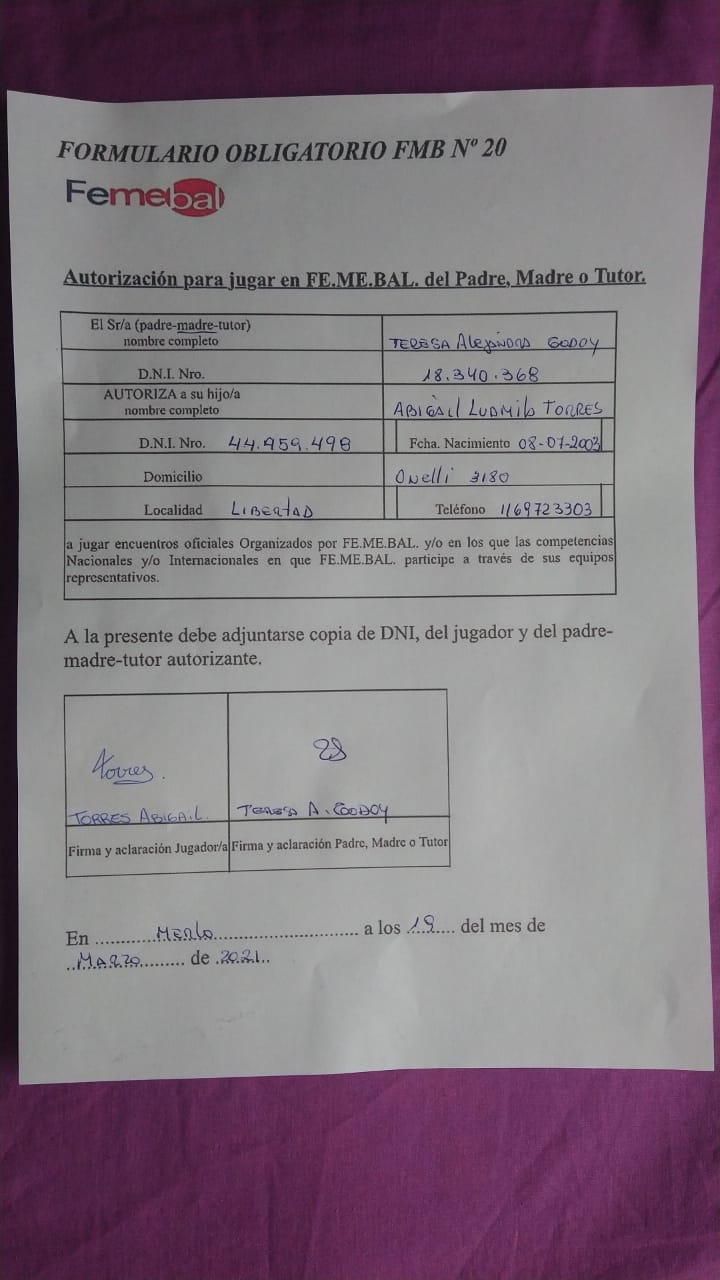 FORMULARIO OBLIGATORIO FMB Nº 20
Femebal
Autorización para jugar en FE.ME.BAL. del Padre, Madre o Tutor.
El Sr/a (padre-madre-tutor)
nombre completo
TERESA Alejandra GODOY
D.N.I. Nro.
18.340.368
AUTORIZA a su hijo/a
nombre completo
ABIGAIL LUDMILA TORRES
D.N.I. Nro. 44.959.498
Fcha. Nacimiento 08-07-2003
Domicilio
Onelli 3180
Localidad LIBERTAD
Teléfono 1169723303
a jugar encuentros oficiales Organizados por FE.ME.BAL. y/o en los que las competencias
Nacionales y/o Internacionales en que FE.ME.BAL. participe a través de sus equipos
representativos.
A la presente debe adjuntarse copia de DNI, del jugador y del padre-
madre-tutor autorizante.
Torres.
TORRES ABIGAIL.
TERESA A. GODOY
Firma y aclaración Jugador/a
Firma y aclaración Padre, Madre o Tutor
En ............Merlo............................. a los .19.... del mes de
..MARZO......... de .2021..